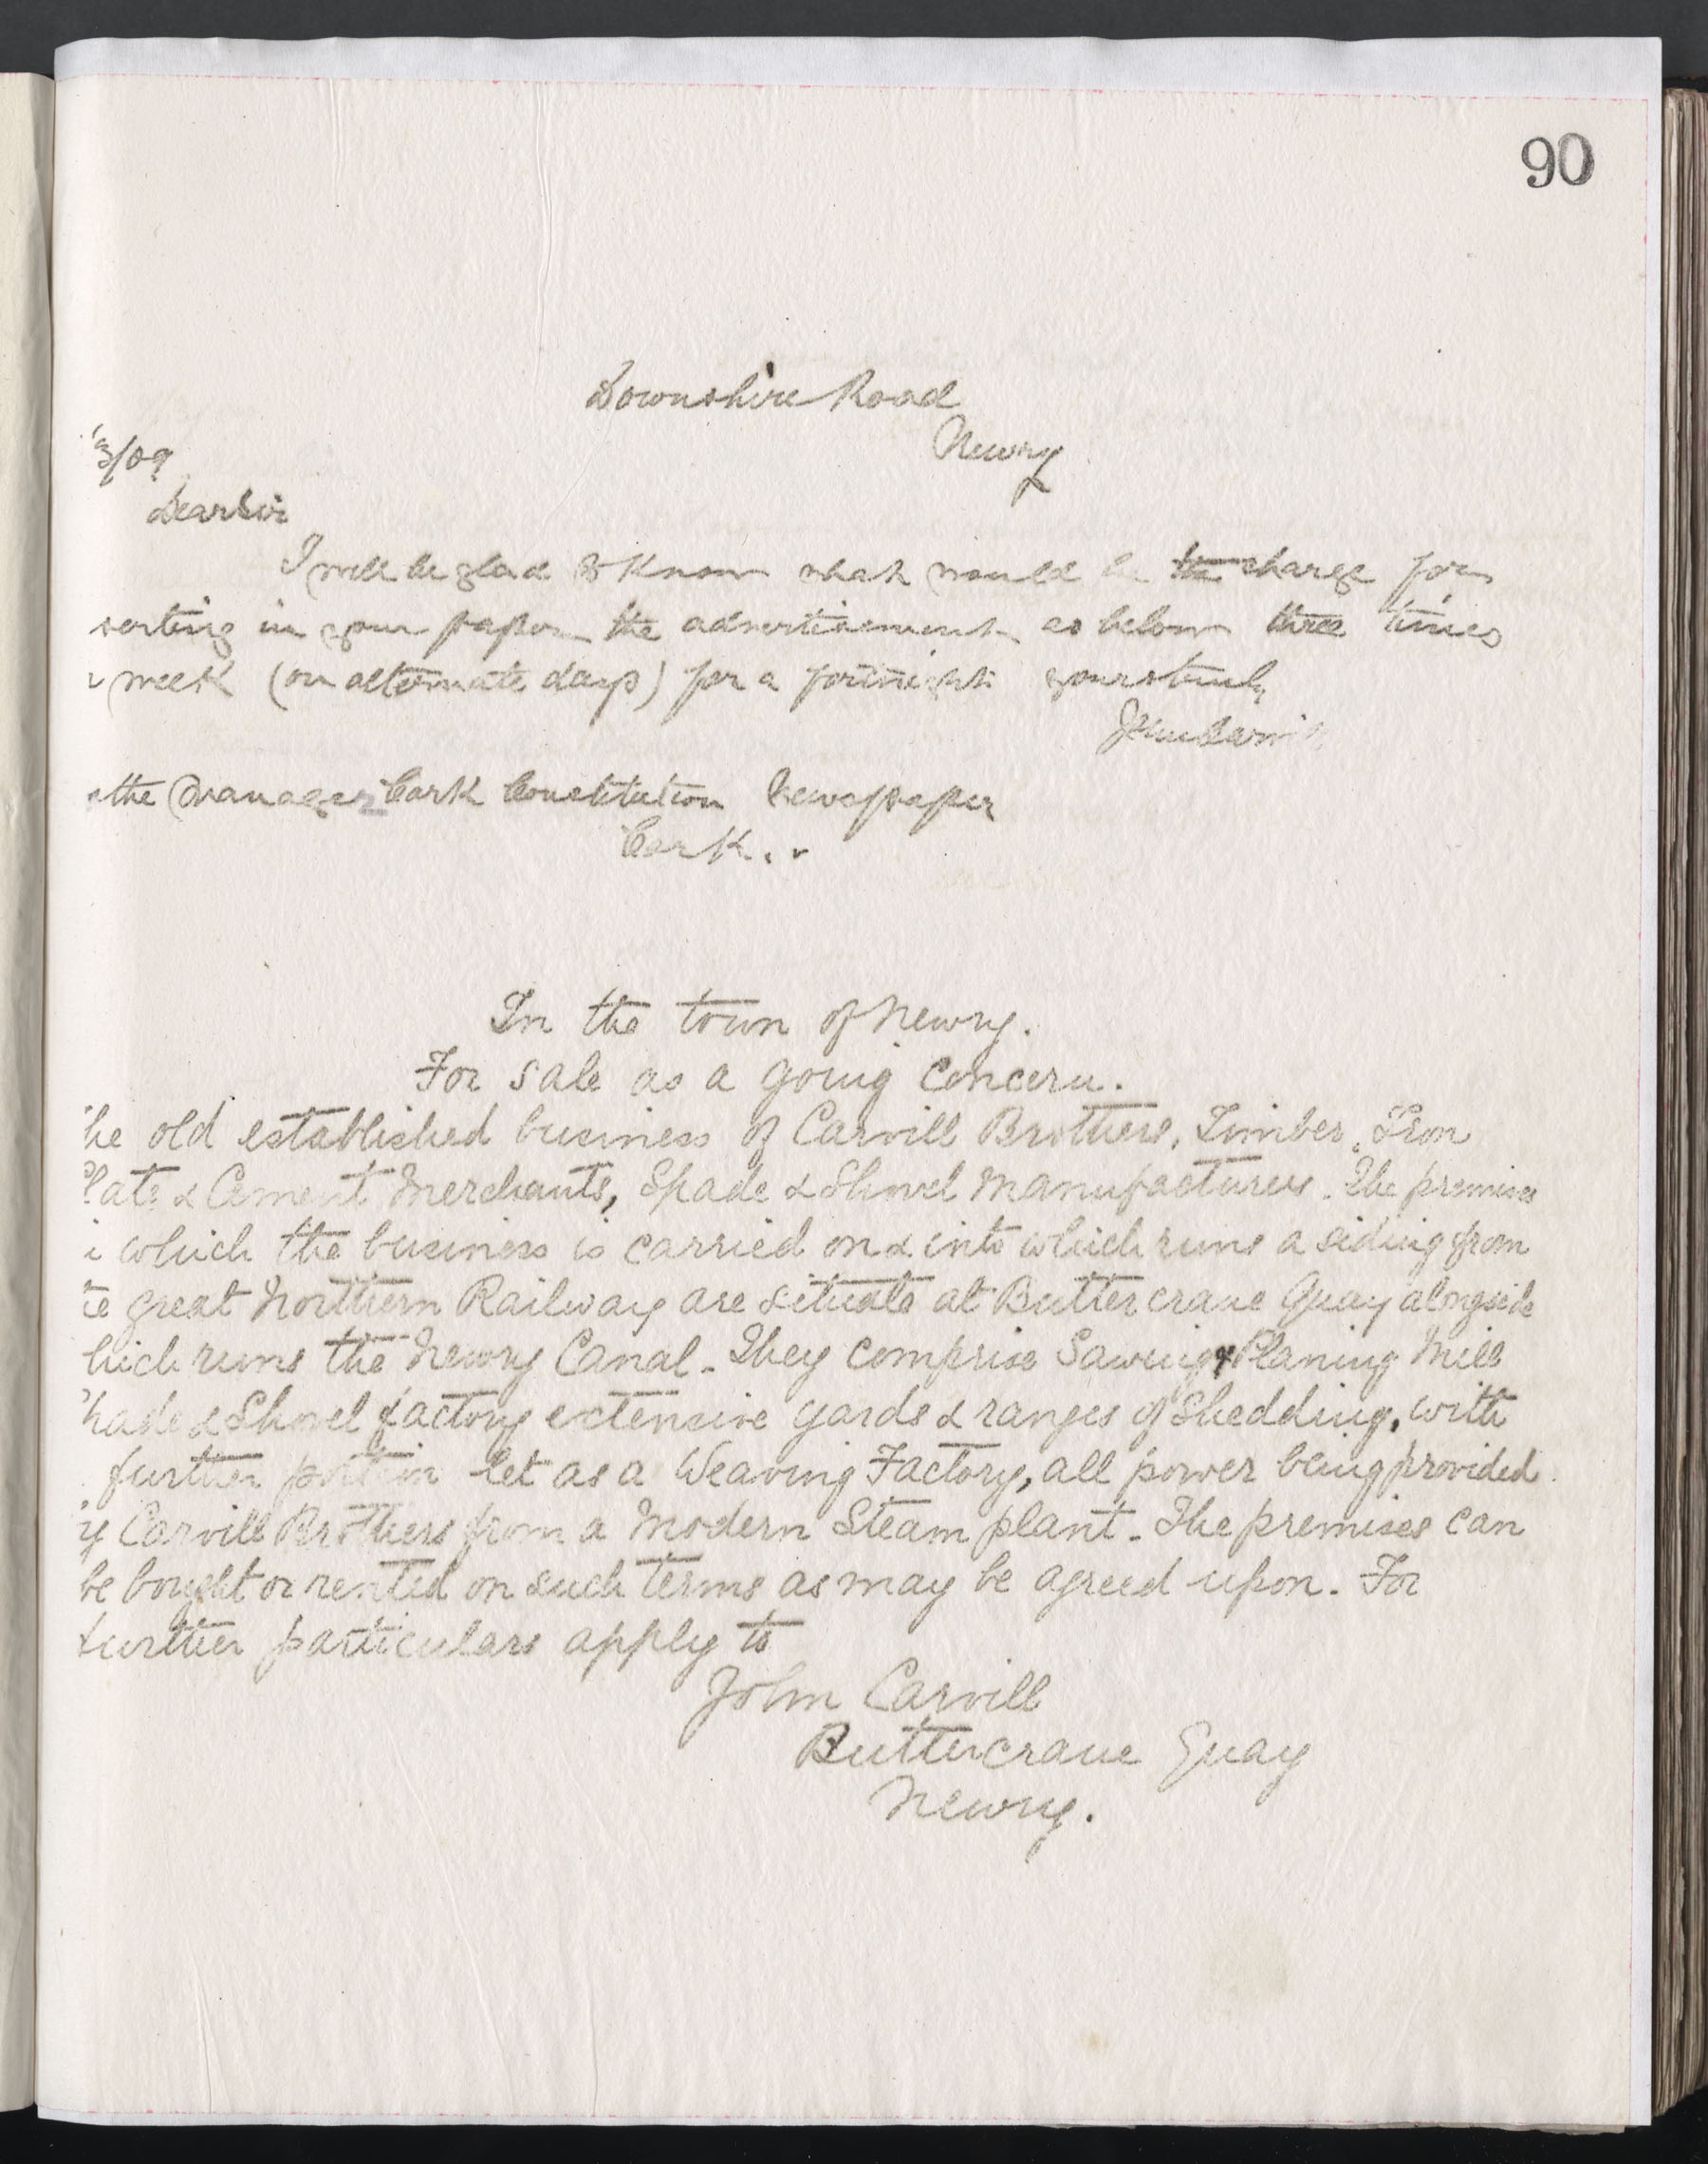 90
Downshire Road
Newry
3/09
Dear Sir
I will be glad to know what would be the charge for
serting in your paper the advertisement as below three times
week (on alternate days) for a fortnight yours truly
John Carvill
the Manager Cork Constitution Newspaper
Cork.
In the town of Newry.
For sale as a going concern.
he old established business of Carvill Brothers, Timber, Iron
late & Cement Merchants, Spade & Shovel Manufacturers. The premises
which the business is carried on & into which runs a siding from
te great Northern Railway are situate at Buttercrane Quay alongside
hich runs the Newry Canal - They comprise Sawing & Planing Mill
hade & Shovel factory extensive yards & ranges of Shedding, with
further portion let as a Weaving Factory, all power being provided
y Carvill Brothers from a Modern Steam plant - The premises can
be bought or rented on such terms as may be agreed upon. For
further particulars apply to
John Carvill
Buttercrane Quay
Newry.